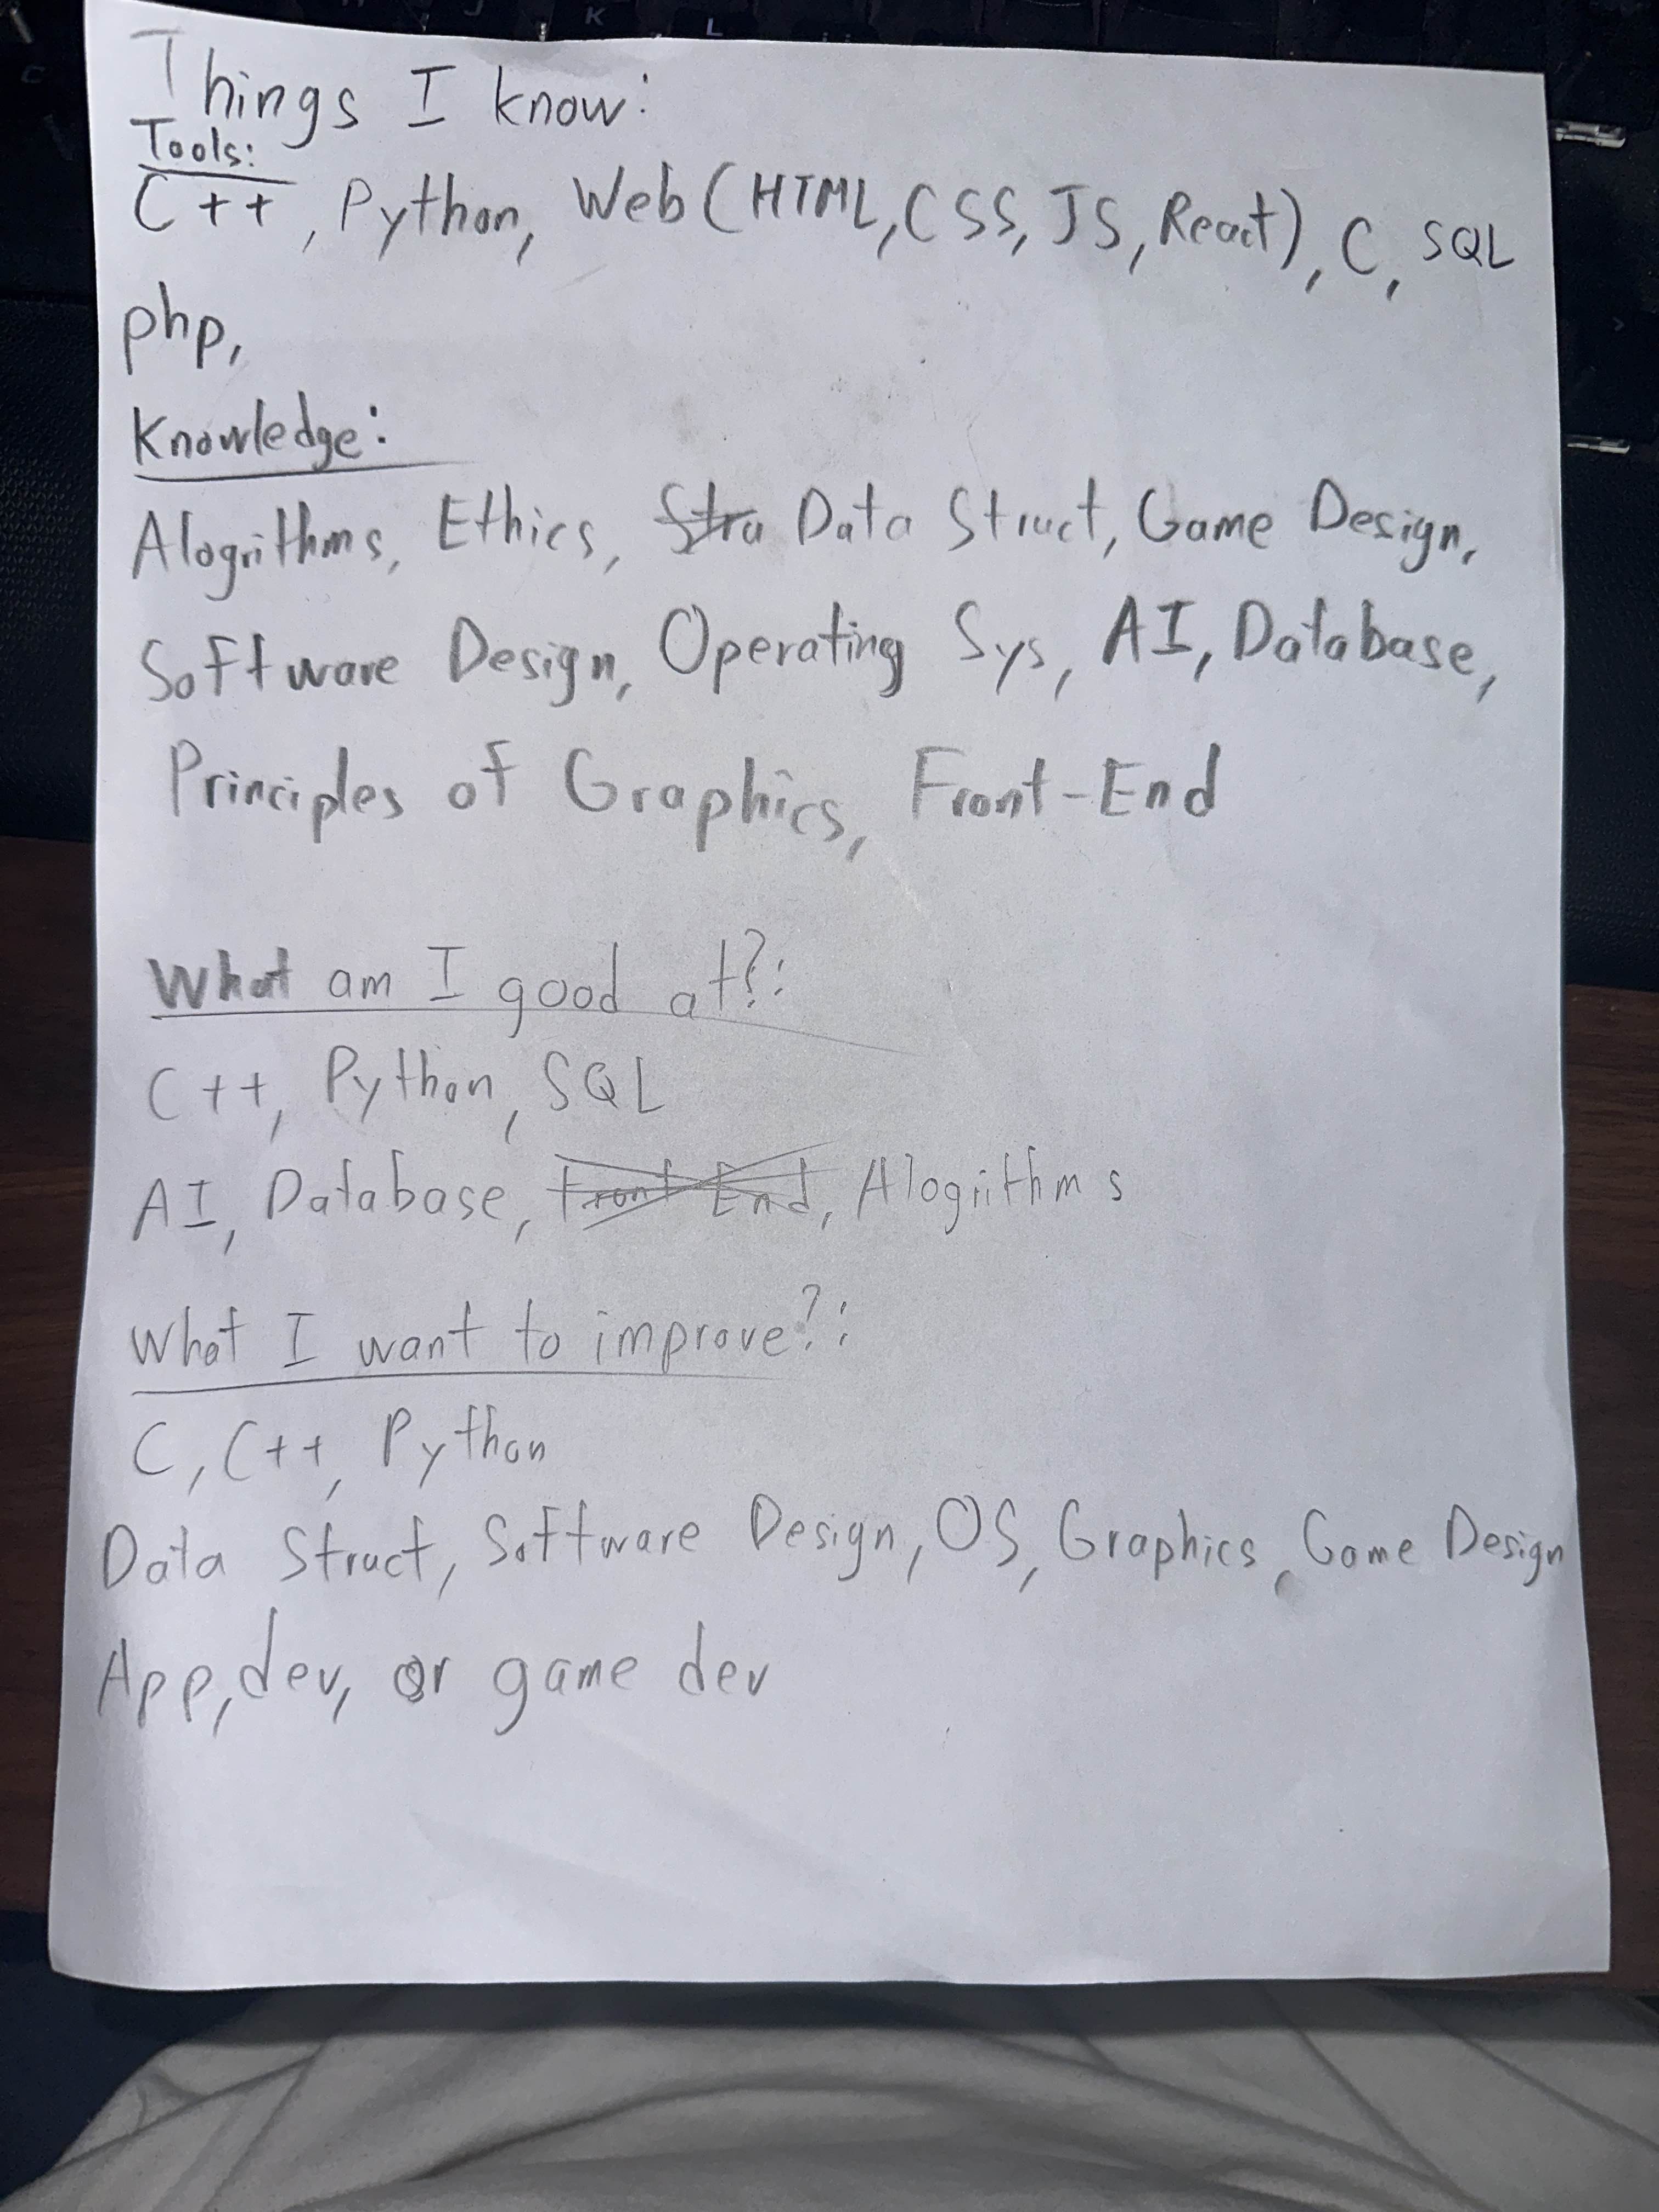 Things I know:
Tools:
C++, Python, Web (HTML, CSS, JS, React), C, SQL
php,
Knowledge:
Alogrithms, Ethics, Stru Data Struct, Game Design,
Software Design, Operating Sys, AI, Database,
Principles of Graphics, Front-End
What am I good at?:
C++, Python, SQL
AI, Database, Front End, Alogrithms
What I want to improve?:
C, C++, Python
Data Struct, Software Design, OS, Graphics, Game Design
App, dev, or game dev